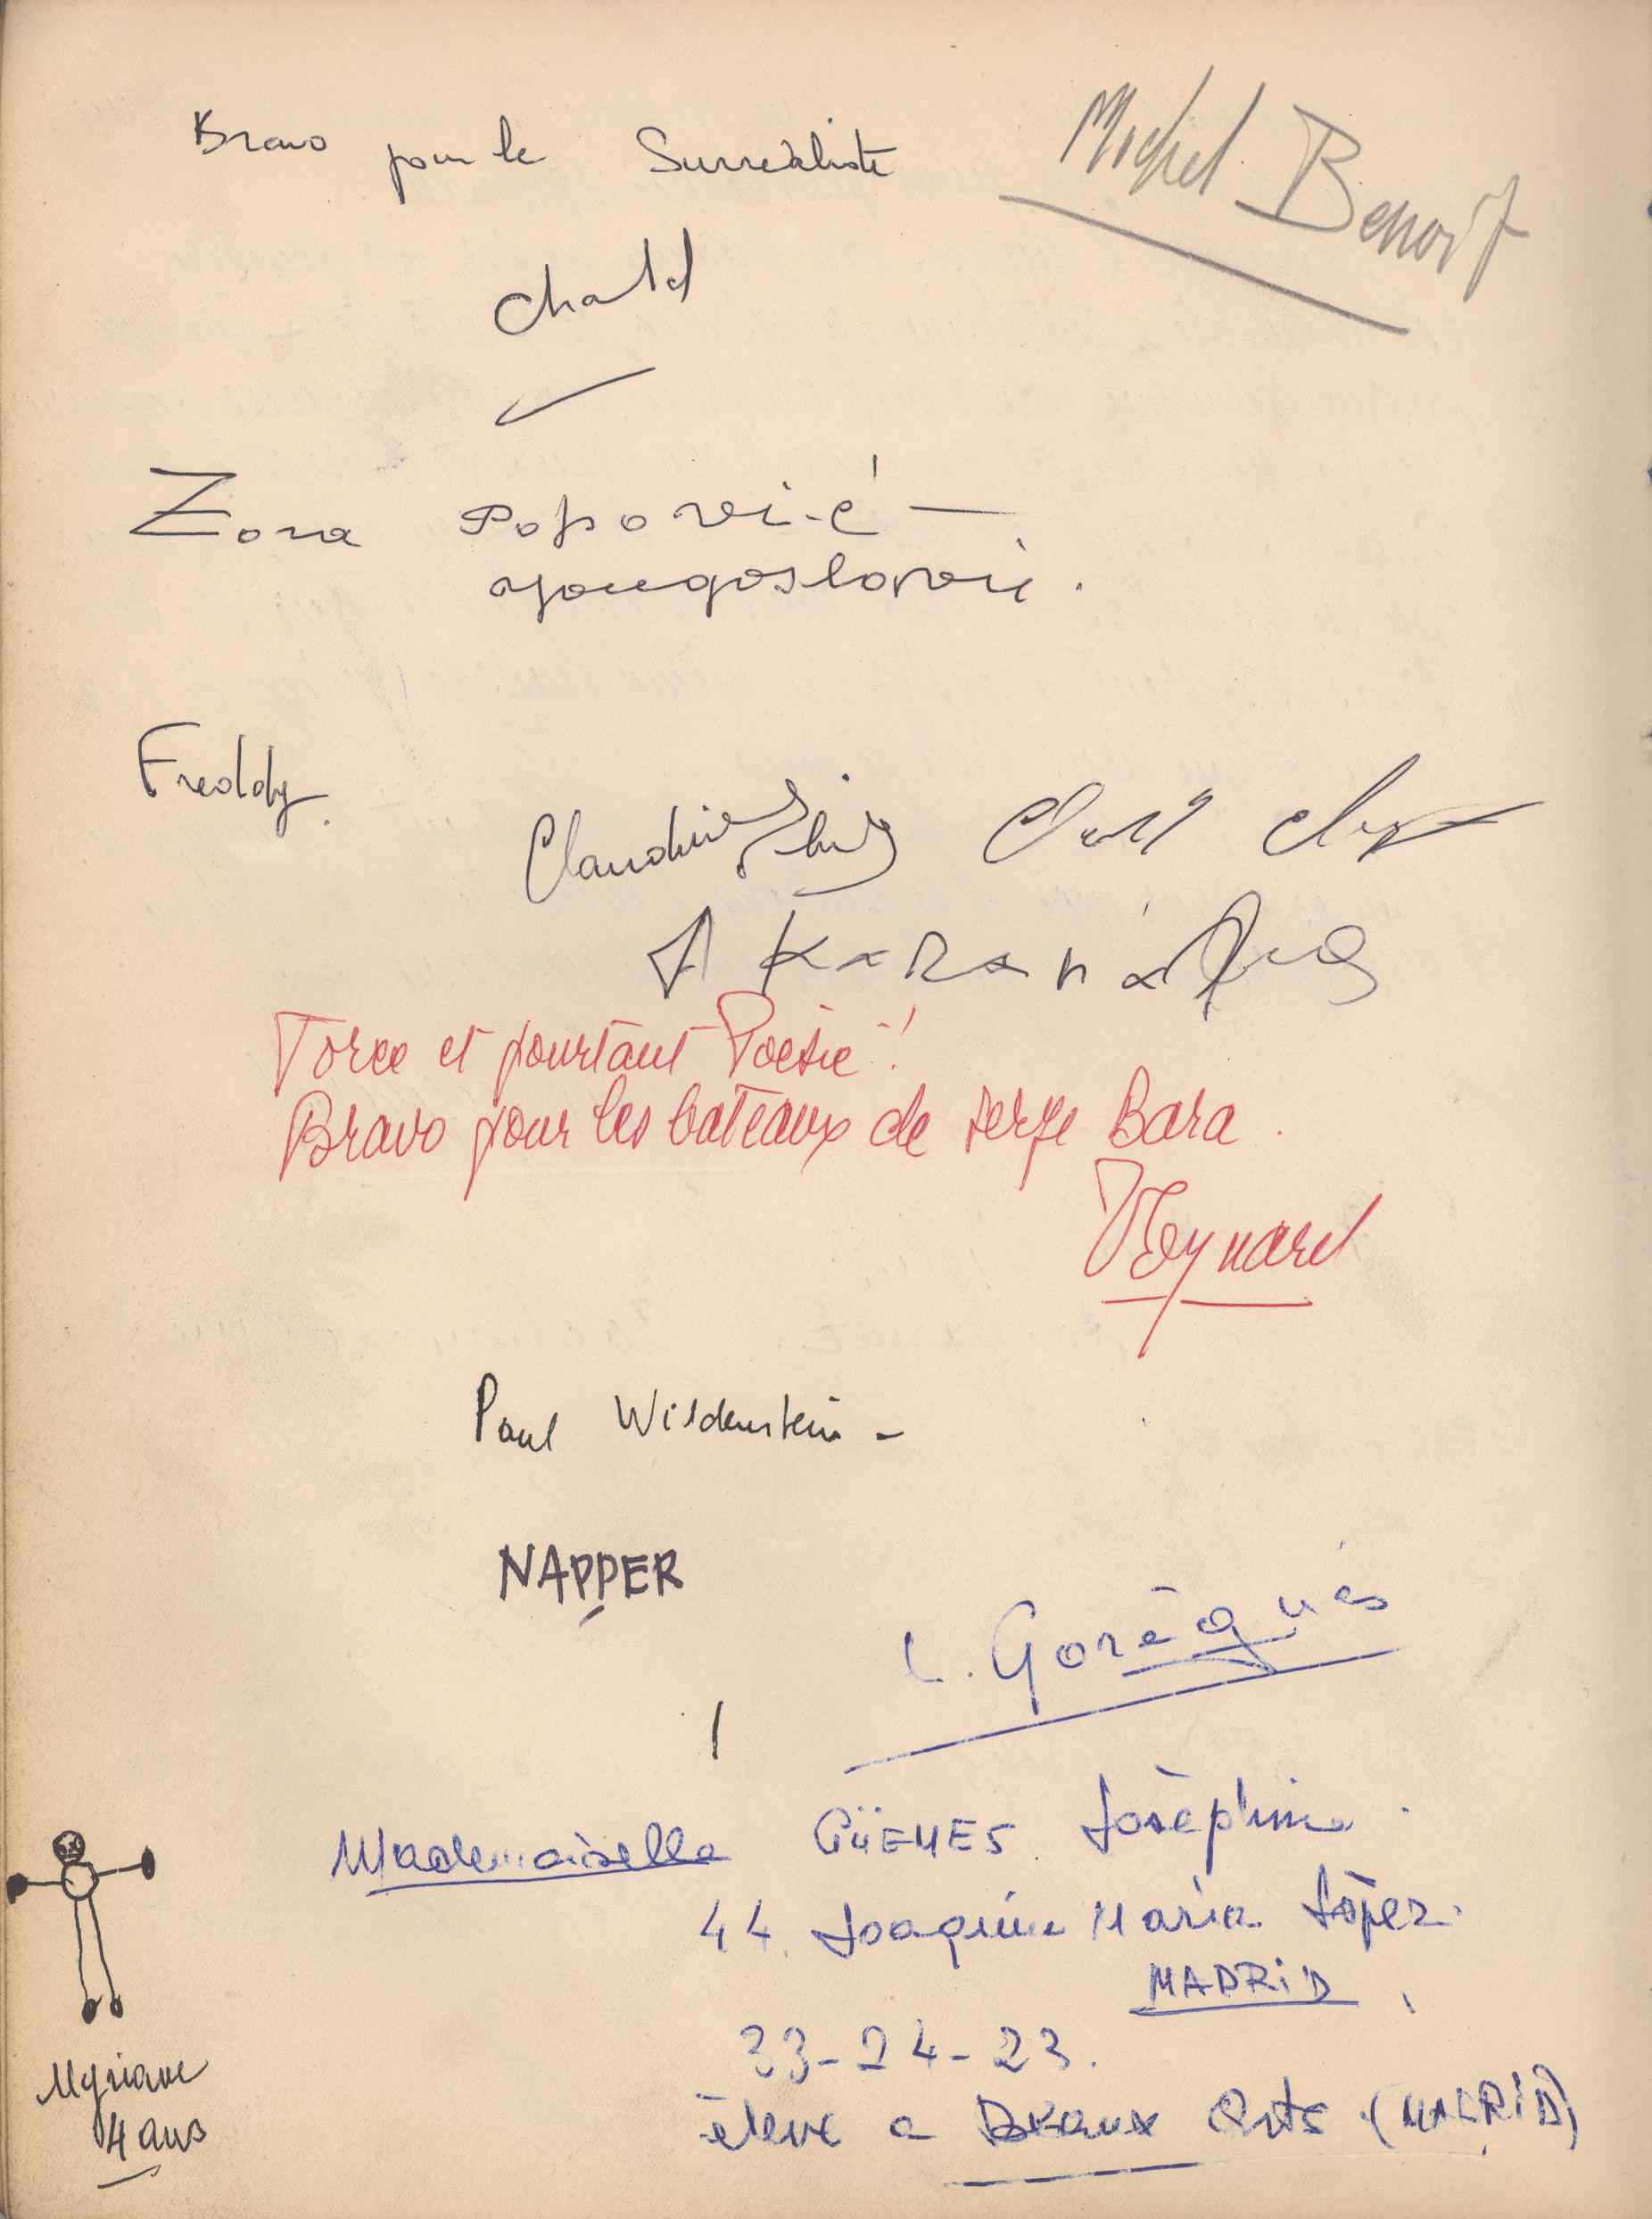 Bravo pour le Surréaliste
Michel Benoit
Chantal
Zora Popović —
Yougoslavie.
Freddy.
Claudine
Force et pourtant Poésie !
Bravo pour les bateaux de Serge Bara.
Paul Wildenstein -
NAPPER
L. Goregués
Mademoiselle GÜEMES Joséphine
44 Joaquin Maria López.
MADRID
33-24-23.
élève a Beaux Arts (MADRID)
Myriane
4 ans